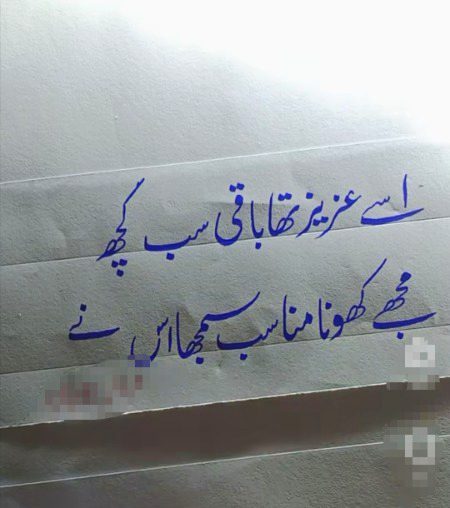 اسے عزیز تھا باقی سب کچھ
مجھے کھونا مناسب سمجھا اس نے